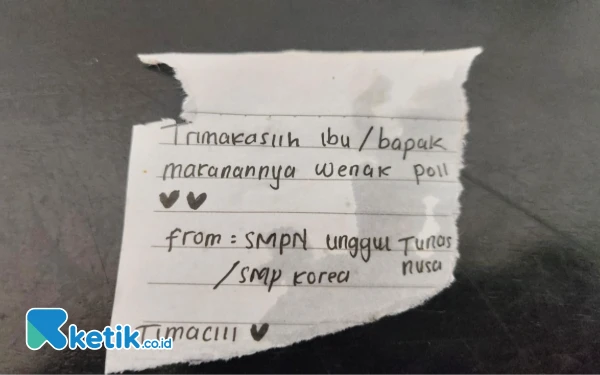 Trimakasiih ibu/bapak
makanannya wenak poll
♥♥
from: SMPN unggul Tunas
nusa
/SMP Korea
Timaciii ♥
ketik.co.id